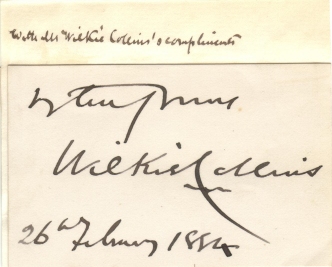 With Mr Wilkie Collins's compliments
Wilkie Collins
26th February 1884